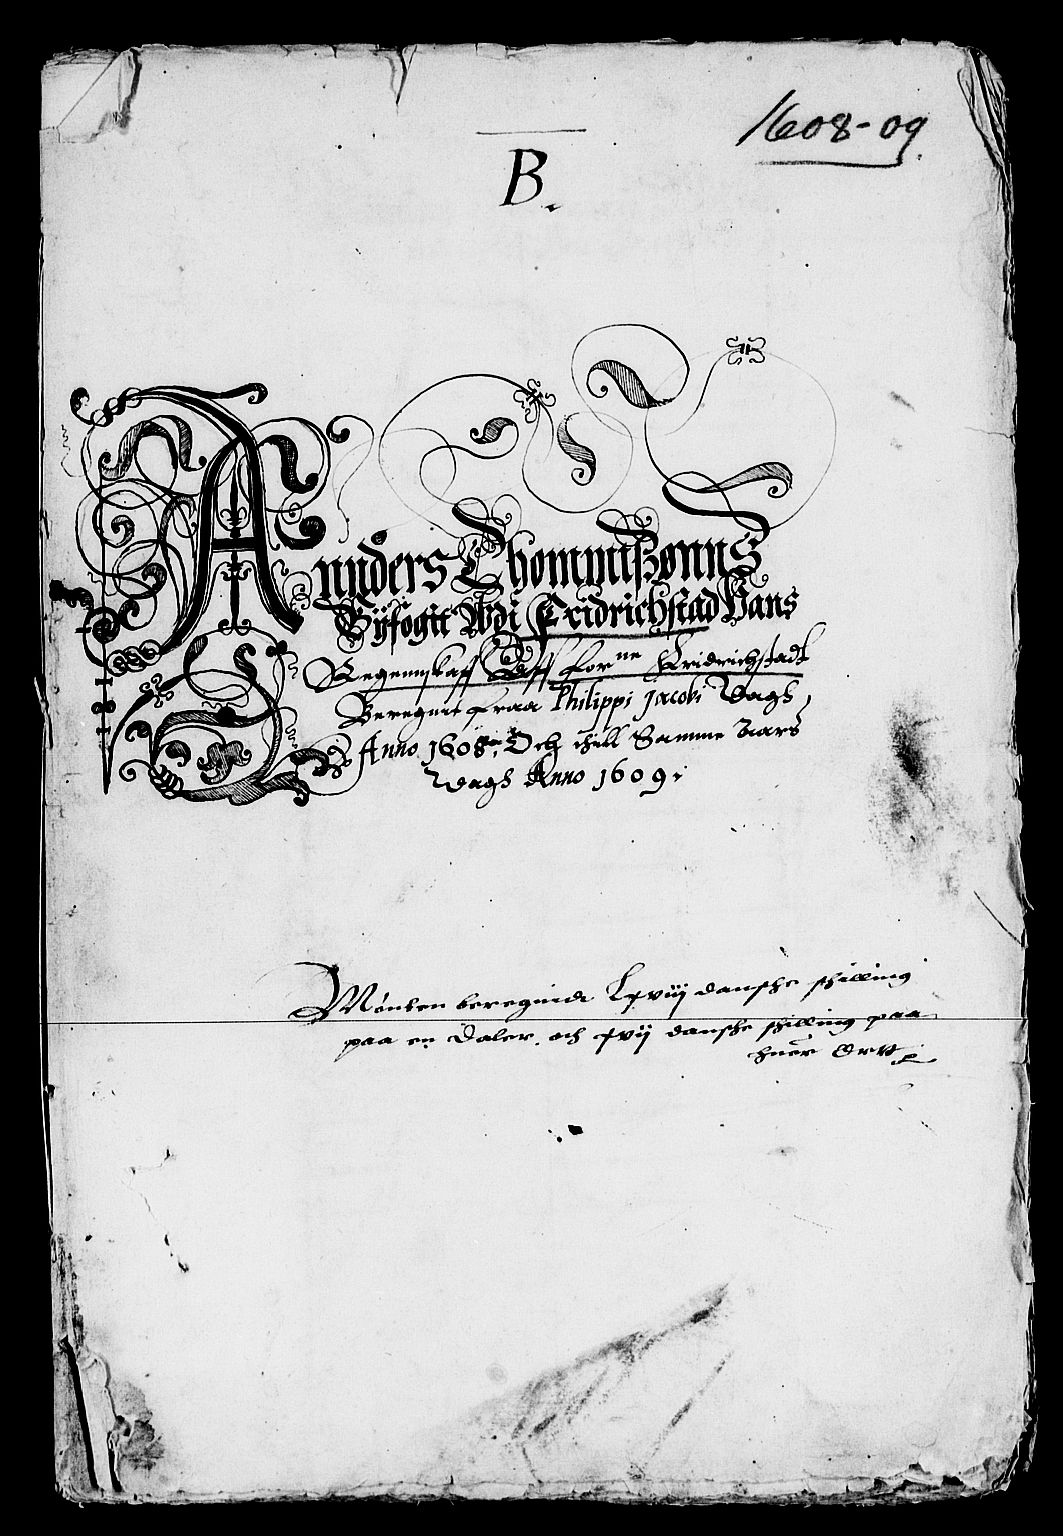 1608-09.
B.
Annders Thommisßønns
Byfogit Udi Fridrichstad Hans
Regennskaff Aff for^ne Fridrichstadt
Beregnit fraa Philippi Jacobi Dagh
Anno 1608 Och thill Samme Aars
Dagh Anno 1609.
Mønten beregnidt Lxviij danske skilling
paa en Daler, och xvij danske skilling paa
huer Ortt